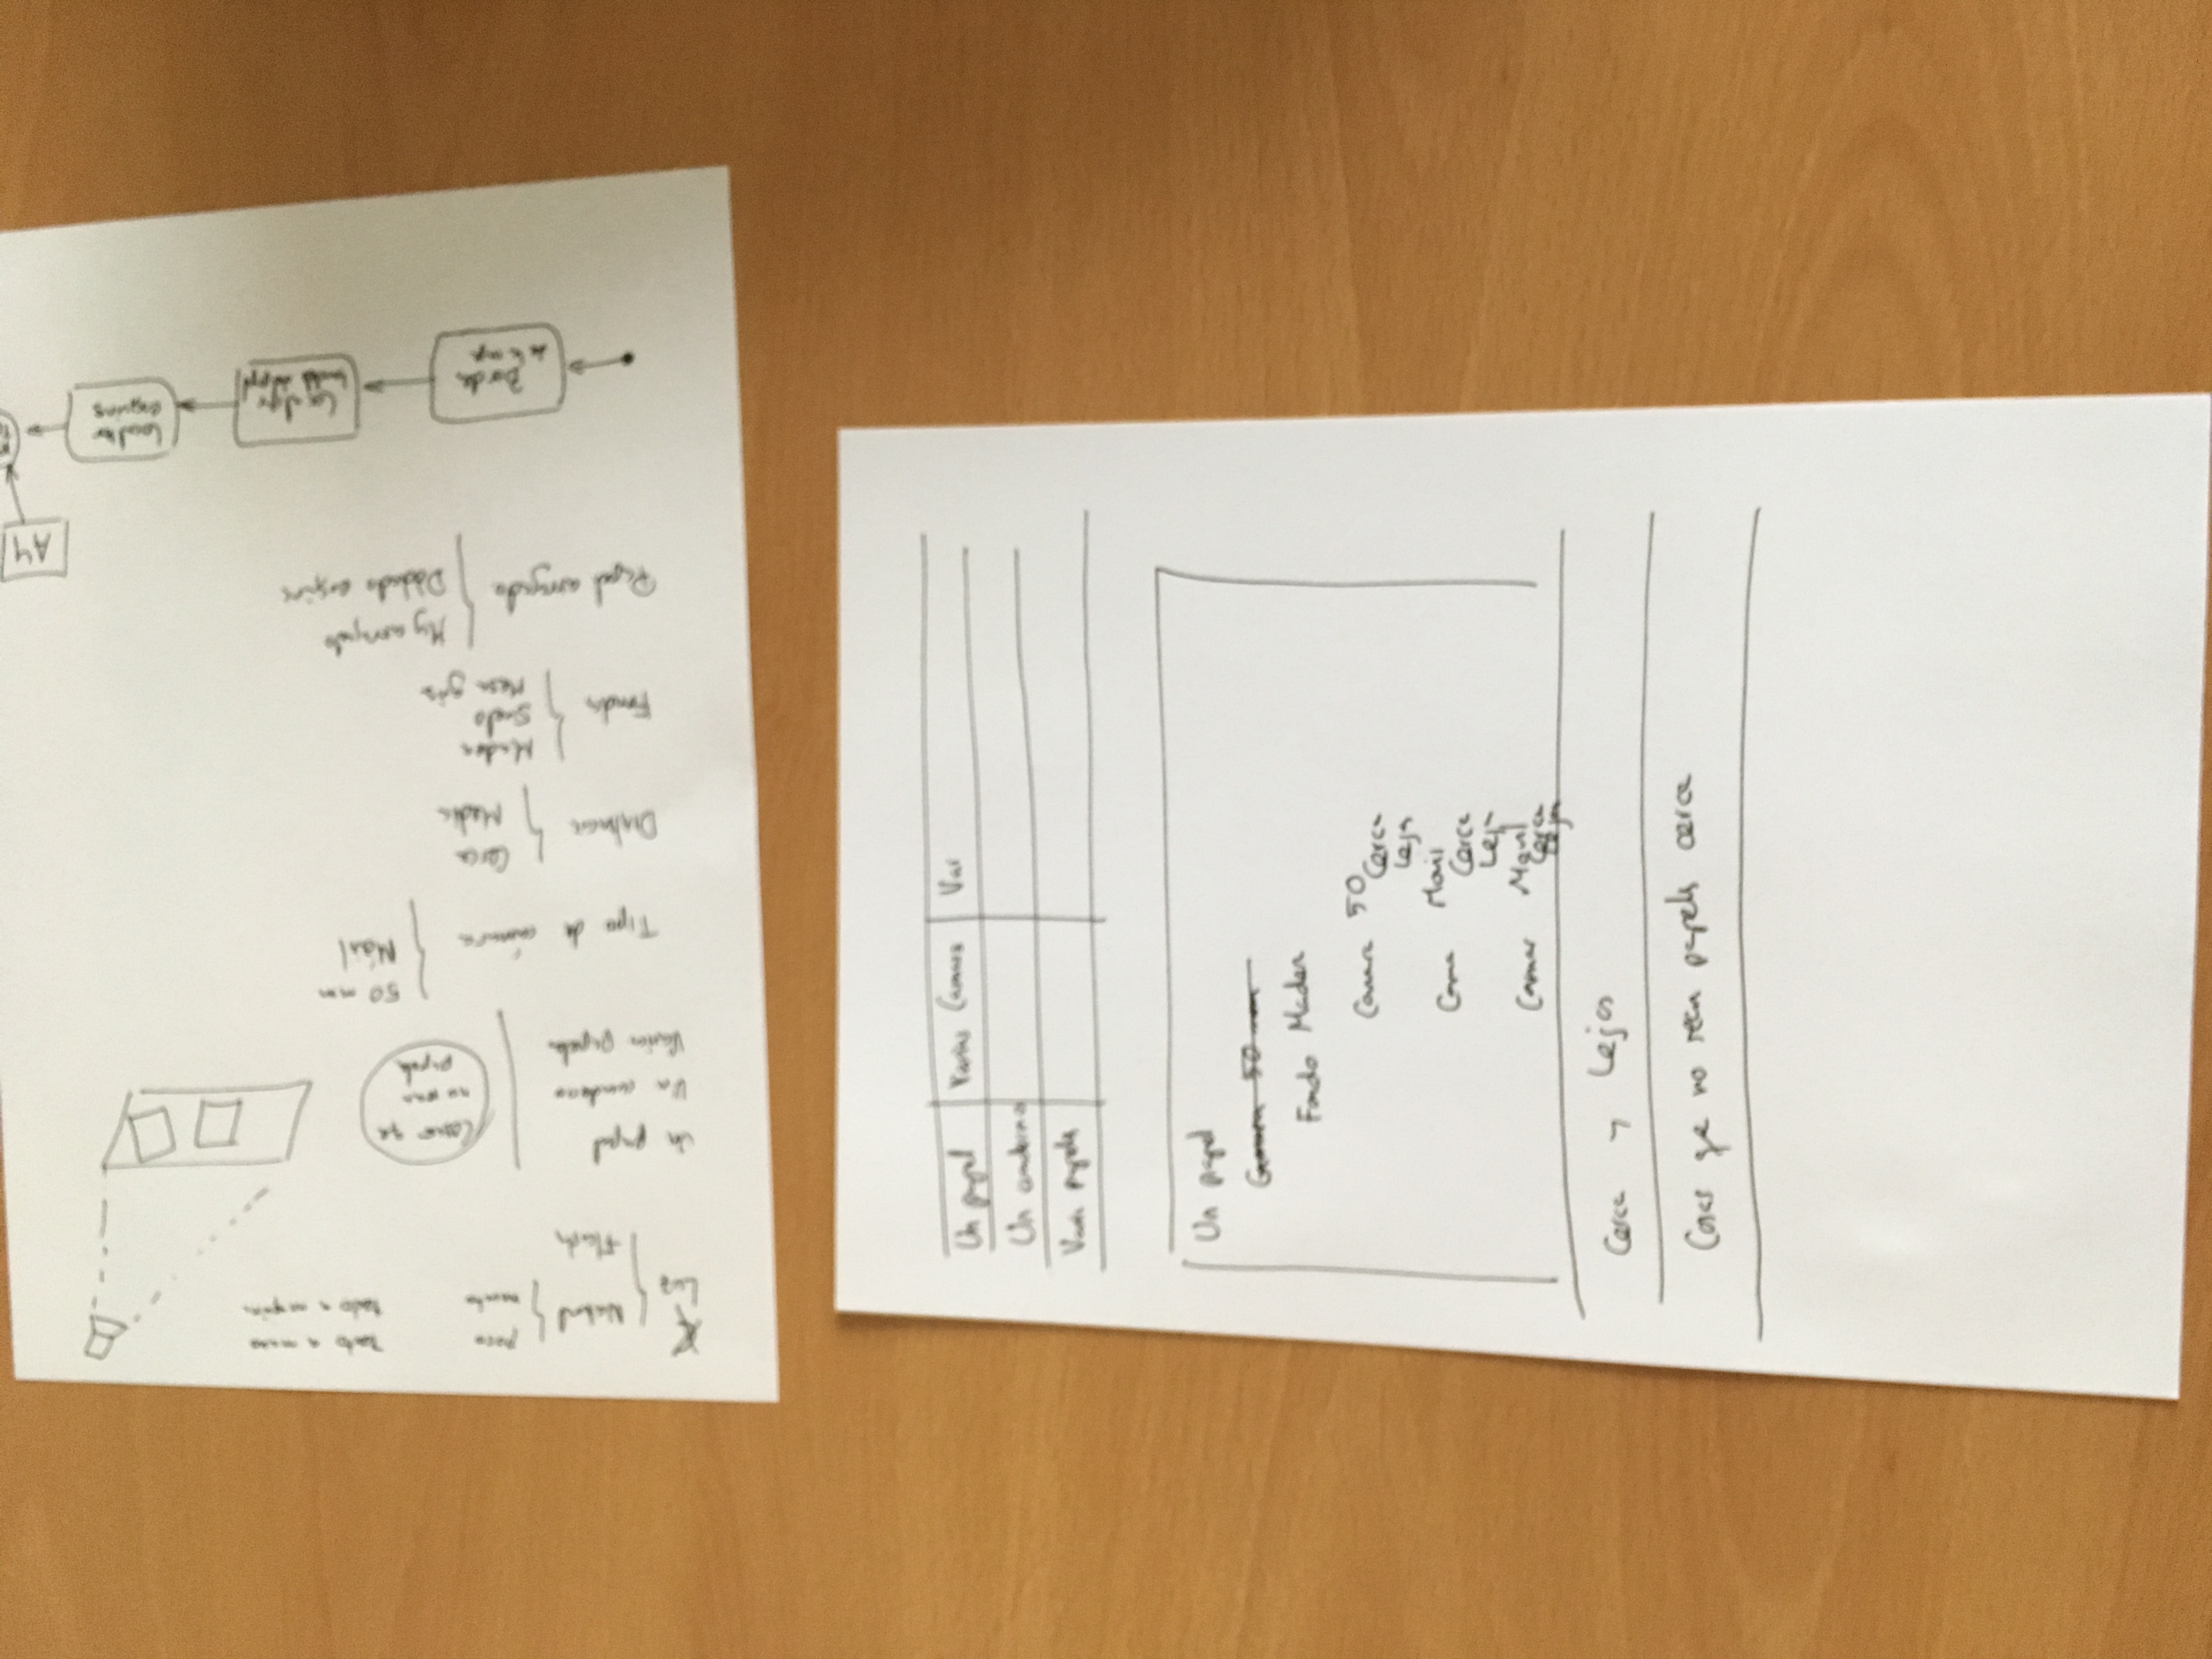 Luz
Natural
poco
mucho
Flash
texto a mano
texto a
Un papel
Un cuaderno
Varios papeles
Cosas que
no sean
papeles
Tipo de cámara
50 mm
Móvil
Distancia
Cerca
Media
Fondo
Madera
Suelo
Mesa gris
Papel arrugado
Muy arrugado
Doblado esquina
Borde
A4
Un papel
Varias Camaras
Var
Un cuaderno
Varios papeles
Un papel
Camara 50 mm
Fondo Madera
Camara 50
Cerca
Lejos
Camara Movil
Cerca
Lejos
Camara Movil
Cerca
Lejos
Cerca y Lejos
Cosas que no sean papeles cerca